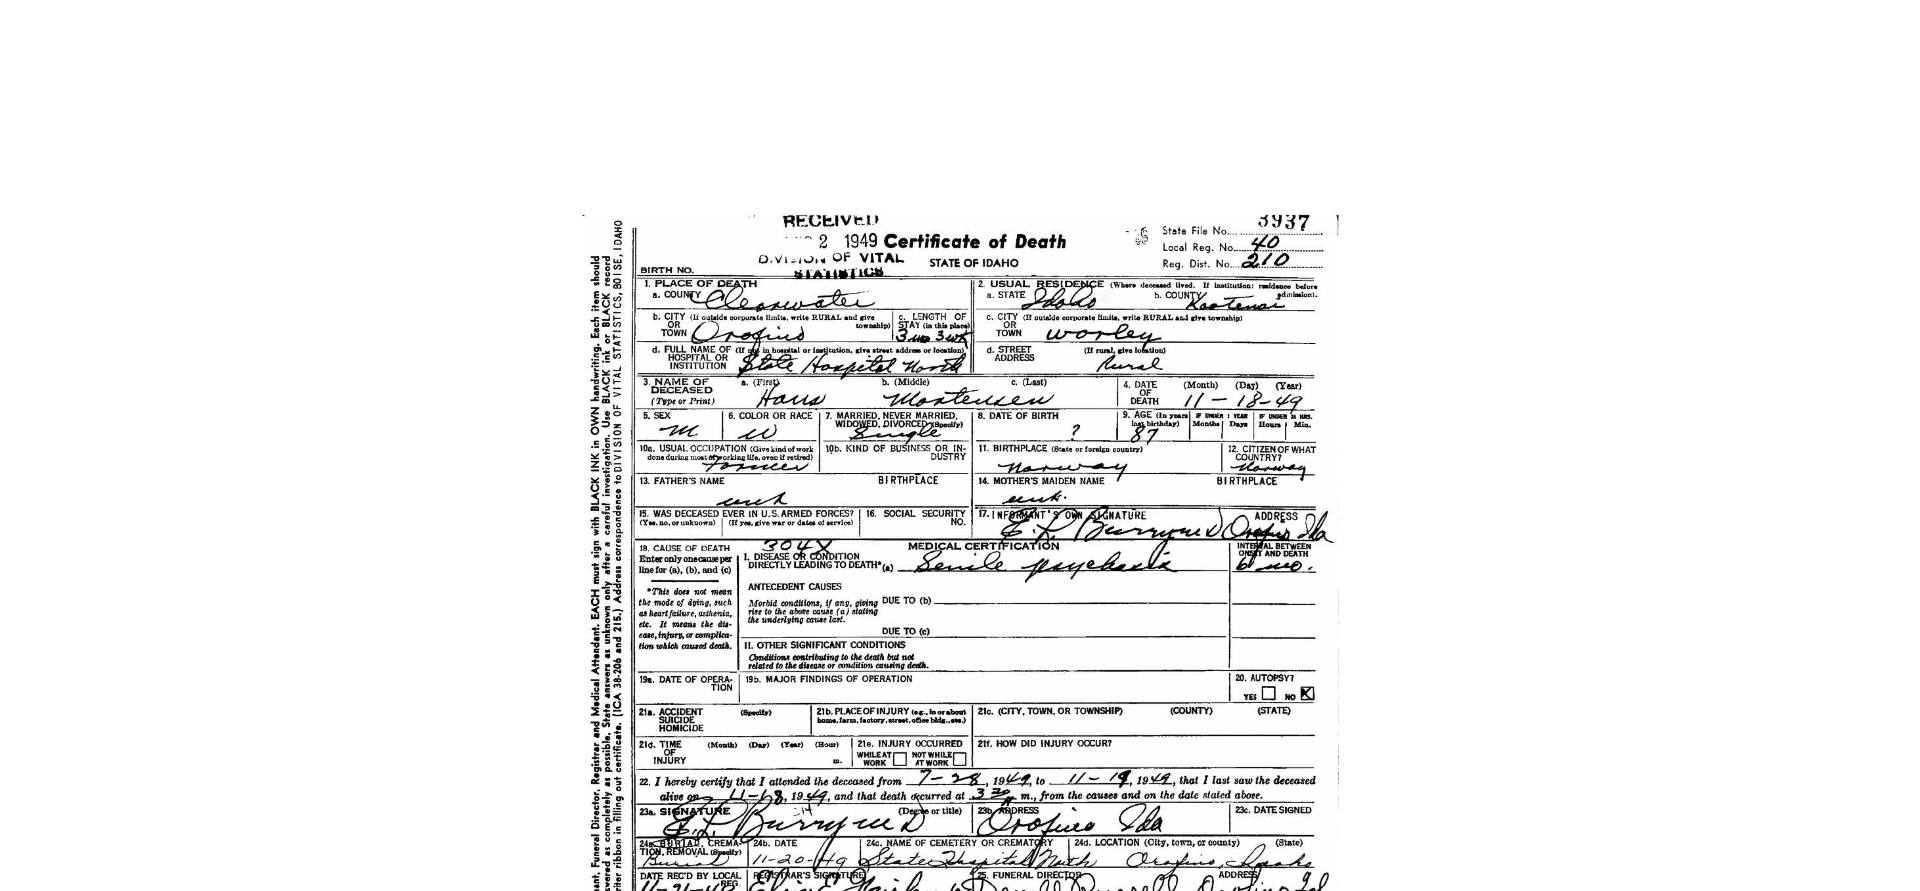 RECEIVED 3937
2 1949 Certificate of Death State File No. 
DIVISION OF VITAL STATE OF IDAHO Local Reg. No. 40
STATISTICS Reg. Dist. No. 210
BIRTH NO.
1. PLACE OF DEATH
a. COUNTY Clearwater
2. USUAL RESIDENCE (Where deceased lived. If institution: residence before admission).
a. STATE Idaho b. COUNTY Kootenai
b. CITY (If outside corporate limits, write RURAL and give township)
OR
TOWN Orofino
c. LENGTH OF
STAY (in this place)
3 mo 3 wk
c. CITY (If outside corporate limits, write RURAL and give township)
OR
TOWN Worley
d. FULL NAME OF (If not in hospital or institution, give street address or location)
HOSPITAL OR
INSTITUTION State Hospital North
d. STREET (If rural, give location)
ADDRESS Rural
3. NAME OF a. (First) b. (Middle) c. (Last)
DECEASED
(Type or Print) Hans Mortensen
4. DATE (Month) (Day) (Year)
OF
DEATH 11-18-49
5. SEX
M
6. COLOR OR RACE
W
7. MARRIED, NEVER MARRIED,
WIDOWED, DIVORCED (Specify)
Single
8. DATE OF BIRTH
?
9. AGE (In years
last birthday)
87
IF UNDER 1 YEAR
Months Days
IF UNDER 24 HRS.
Hours Min.
10a. USUAL OCCUPATION (Give kind of work
done during most of working life, even if retired)
Farmer
10b. KIND OF BUSINESS OR IN-
DUSTRY
11. BIRTHPLACE (State or foreign country)
Norway
12. CITIZEN OF WHAT
COUNTRY?
Norway
13. FATHER'S NAME BIRTHPLACE
unk
14. MOTHER'S MAIDEN NAME BIRTHPLACE
unk.
15. WAS DECEASED EVER IN U.S. ARMED FORCES?
(Yes, no, or unknown) (If yes, give war or dates of service)
16. SOCIAL SECURITY
NO.
17. INFORMANT'S OWN SIGNATURE ADDRESS
Orofino Ida
18. CAUSE OF DEATH
Enter only one cause per
line for (a), (b), and (c)
*This does not mean
the mode of dying, such
as heart failure, asthenia,
etc. It means the dis-
ease, injury, or complica-
tion which caused death.
304X
MEDICAL CERTIFICATION
I. DISEASE OR CONDITION
DIRECTLY LEADING TO DEATH*(a) Senile psychosis
INTERVAL BETWEEN
ONSET AND DEATH
6 mo.
ANTECEDENT CAUSES
Morbid conditions, if any, giving DUE TO (b)
rise to the above cause (a) stating
the underlying cause last.
DUE TO (c)
II. OTHER SIGNIFICANT CONDITIONS
Conditions contributing to the death but not
related to the disease or condition causing death.
19a. DATE OF OPERA-
TION
19b. MAJOR FINDINGS OF OPERATION
20. AUTOPSY?
YES NO X
21a. ACCIDENT (Specify)
SUICIDE
HOMICIDE
21b. PLACE OF INJURY (e.g., in or about
home, farm, factory, street, office bldg., etc.)
21c. (CITY, TOWN, OR TOWNSHIP) (COUNTY) (STATE)
21d. TIME (Month) (Day) (Year) (Hour)
OF
INJURY m.
21e. INJURY OCCURRED
WHILE AT NOT WHILE
WORK AT WORK
21f. HOW DID INJURY OCCUR?
22. I hereby certify that I attended the deceased from 7-28, 1949, to 11-19, 1949, that I last saw the deceased
alive on 11-18, 1949, and that death occurred at m., from the causes and on the date stated above.
23a. SIGNATURE (Degree or title)
23b. ADDRESS
Orofino Ida
23c. DATE SIGNED
24a. BURIAL, CREMA-
TION, REMOVAL (Specify)
Burial
24b. DATE
11-20-49
24c. NAME OF CEMETERY OR CREMATORY
State Hospital North
24d. LOCATION (City, town, or county) (State)
Orofino, Idaho
DATE REC'D BY LOCAL
REG.
REGISTRAR'S SIGNATURE
25. FUNERAL DIRECTOR ADDRESS
Funeral Director, Registrar and Medical Attendant. EACH must sign with BLACK INK in OWN handwriting. Each item should
as completely as possible. State answers as unknown only after a careful investigation. Use BLACK ink or BLACK record
ribbon in filling out certificate. (ICA 38-206 and 215.) Address correspondence to DIVISION OF VITAL STATISTICS, BOISE, IDAHO